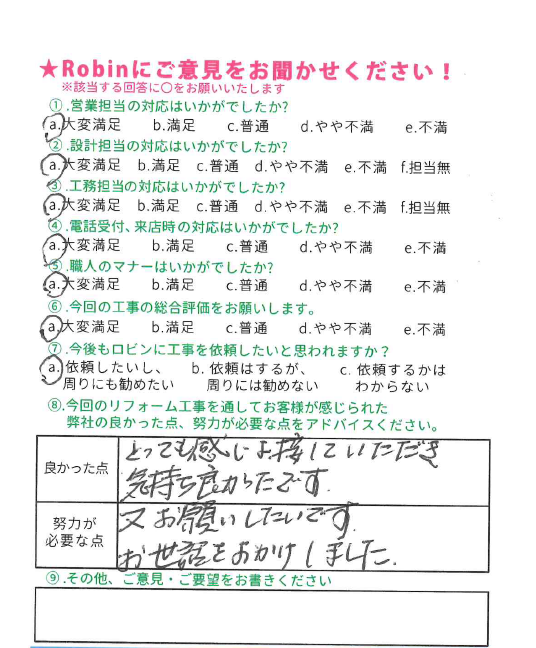 ★Robinにご意見をお聞かせください！
※該当する回答に○をお願いいたします
①.営業担当の対応はいかがでしたか?
a.大変満足 b.満足 c.普通 d.やや不満 e.不満
②.設計担当の対応はいかがでしたか?
a.大変満足 b.満足 c.普通 d.やや不満 e.不満 f.担当無
③.工務担当の対応はいかがでしたか?
a.大変満足 b.満足 c.普通 d.やや不満 e.不満 f.担当無
④.電話受付、来店時の対応はいかがでしたか?
a.大変満足 b.満足 c.普通 d.やや不満 e.不満
⑤.職人のマナーはいかがでしたか?
a.大変満足 b.満足 c.普通 d.やや不満 e.不満
⑥.今回の工事の総合評価をお願いします。
a.大変満足 b.満足 c.普通 d.やや不満 e.不満
⑦.今後もロビンに工事を依頼したいと思われますか？
a.依頼したいし、 b.依頼はするが、 c.依頼するかは
周りにも勧めたい 周りには勧めない わからない
⑧.今回のリフォーム工事を通してお客様が感じられた
弊社の良かった点、努力が必要な点をアドバイスください。
良かった点
とっても感じよ接していただき
気持ち良かったです.
努力が
必要な点
又お願いしたいです.
お世話をおかけしました.
⑨.その他、ご意見・ご要望をお書きください